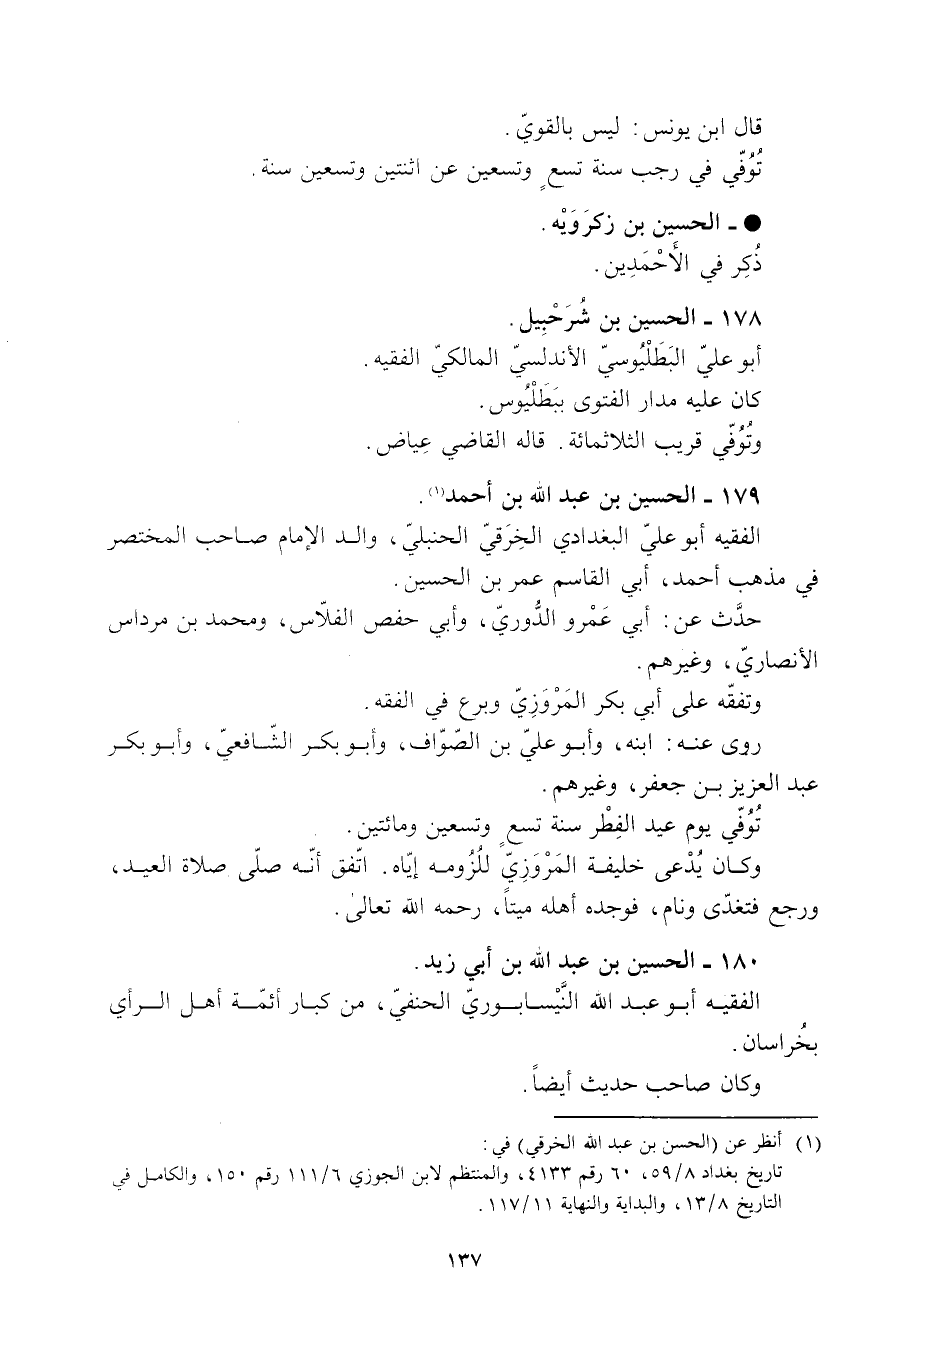 قال ابن يونس: ليس بالقويّ.
تُوُفّي في رجب سنة تسعٍ وتسعين عن اثنتين وتسعين سنة.
● ـ الحسين بن زكرَوَيْه.
ذُكِر في الأَحْمَدِين.
١٧٨ ـ الحسين بن شُرَحْبِيل.
أبو عليّ البَطَلْيُوسيّ الأندلسيّ المالكيّ الفقيه.
كان عليه مدار الفتوى ببَطَلْيُوس.
وتُوُفّي قريب الثلاثمائة. قاله القاضي عِياض.
١٧٩ ـ الحسين بن عبد الله بن أحمد(١).
الفقيه أبو عليّ البغدادي الخِرَقيّ الحنبليّ، والد الإمام صاحب المختصر
في مذهب أحمد، أبي القاسم عمر بن الحسين.
حدَّث عن: أبي عَمْرو الدُّوريّ، وأبي حفص الفلّاس، ومحمد بن مرداس
الأنصاريّ، وغيرهم.
وتفقّه على أبي بكر المَرْوَزِيّ وبرع في الفقه.
روى عنه: ابنه، وأبو عليّ بن الصّوّاف، وأبو بكر الشّافعيّ، وأبو بكر
عبد العزيز بن جعفر، وغيرهم.
تُوُفّي يوم عيد الفِطْر سنة تسعٍ وتسعين ومائتين.
وكان يُدْعى خليفة المَرْوَزِيّ للُزُومه إيّاه. اتّفق أنّه صلّى صلاة العيد،
ورجع فتغدّى ونام، فوجده أهله ميتاً، رحمه الله تعالىٰ.
١٨٠ ـ الحسين بن عبد الله بن أبي زيد.
الفقيه أبو عبد الله النَّيْسابوريّ الحنفيّ، من كبار أئمّة أهل الرأي
بخُراسان.
وكان صاحب حديث أيضاً.
(١) أنظر عن (الحسن بن عبد الله الخرقي) في:
تاريخ بغداد ٥٩/٨، ٦٠ رقم ٤١٣٣، والمنتظم لابن الجوزي ١١١/٦ رقم ١٥٠، والكامل في
التاريخ ١٣/٨، والبداية والنهاية ١١٧/١١.
١٣٧